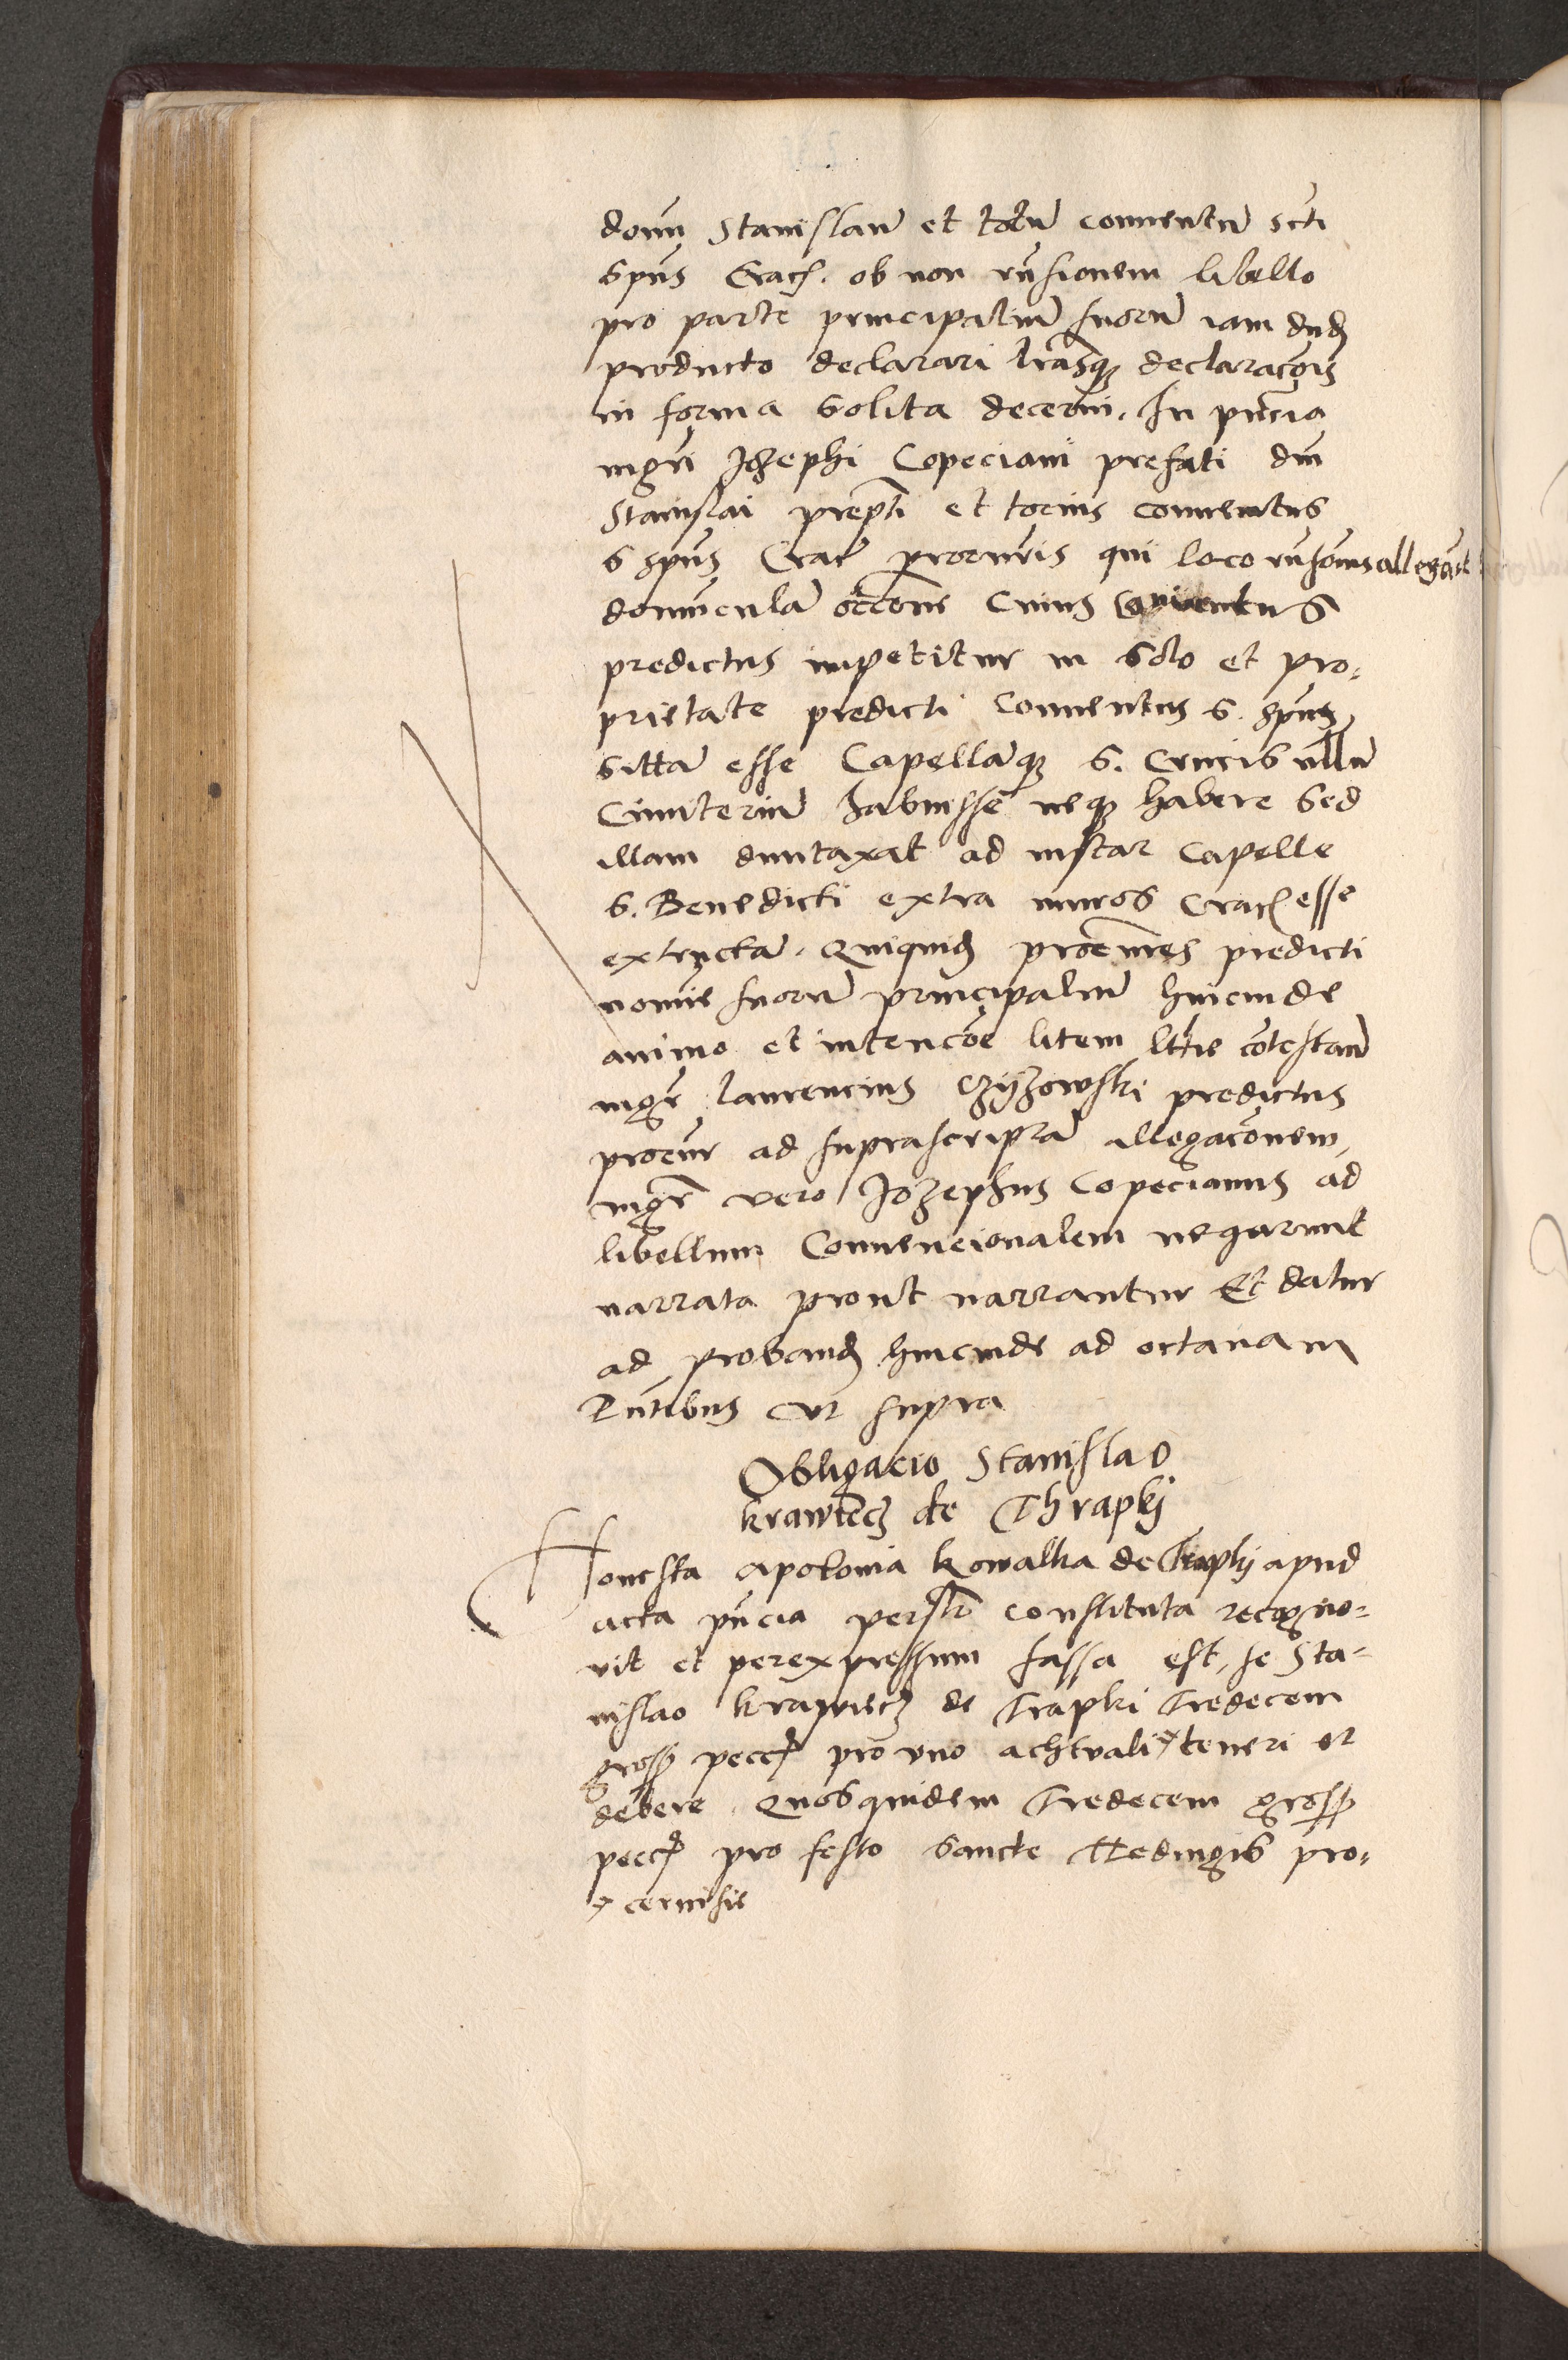 domū Stanislaū et totū conuentū scti
Spūs Crac. ob non rn̄sionem libello
pro parte principaliū suorū iam dud
producto declarari lr̄asq declaracōis
in forma solita decerni. In pn̄cia
mgri Jozephi Copeciani prefati dni
Stanislai prepti et tocius conuentus
S Spūs Crac procuris qui loco rn̄sionis allegauit
domunculā occōne cuius conuentus
predictus impetitur in solo et pro-
prietate predicti Conuentus S. Spūs
sittā esse Capellāq S. Crucis nullū
Cimiteriū habuisse neq habere sed
illam duntaxat ad instar Capelle
S. Benedicti extra muros Crac esse
extructā. Quiquid procures predicti
nomīe suorū principaliū hincinde
animo et intencōe litem lttīe cōtestan
mgr laurencius Czyzowski predictus
procur ad suprascriptā allegacōnem,
mgr vero Jozephus Copecianus ad
libellum Conuencionalem negarunt
narrata prout narrantur Et datur
ad proband hincinde ad octauam
Pn̄tibus vt supra
Obligacio Stanislao
krawiecz de Thrapki
Honesta Apolonia Kowalka de Trapki apud
acta pn̄cia person̄lr constituta recogno-
uit et perexpressum fassa est, se Sta-
nislao krawiecz de Trapki Tredecem
gross pecc pro vno achtvali teneri et
debere. Quosquidem Tredecem gross
pecc pro festo Sancte Hedingis pro-
cernisie